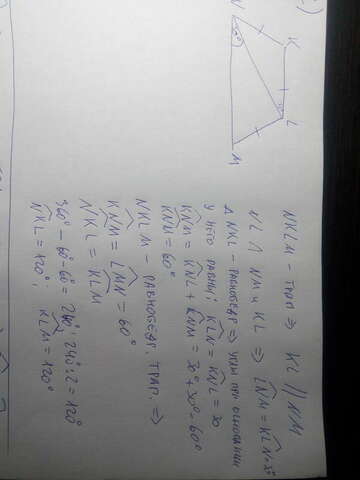 NKLM - ТРАП ⇒ KL // NM
NL ∩ NM и KL ⇒ LNM = KLN = 30°
Δ NKL - РАВНОБЕДР ⇒ УГЛЫ ПРИ ОСНОВАНИИ
У НЕГО РАВНЫ; KLN = KNL = 30
KNM = KNL + LNM = 30° + 30° = 60°
KNM = 60°
NKLM - РАВНОБЕДР. ТРАП. ⇒
KNM = LMN = 60°
NKL = KLM
360° - 60° - 60° = 240°; 240° : 2 = 120°
NKL = 120°; KLM = 120°
N
K
L
M